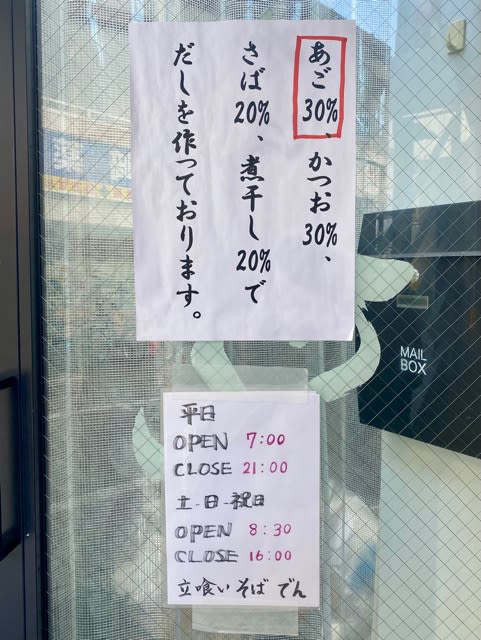 あご30%、かつお30%、
さば20%、煮干し20%で
だしを作っております。
MAIL
BOX
平日
OPEN 7:00
CLOSE 21:00
土-日-祝日
OPEN 8:30
CLOSE 16:00
立喰いそば でん